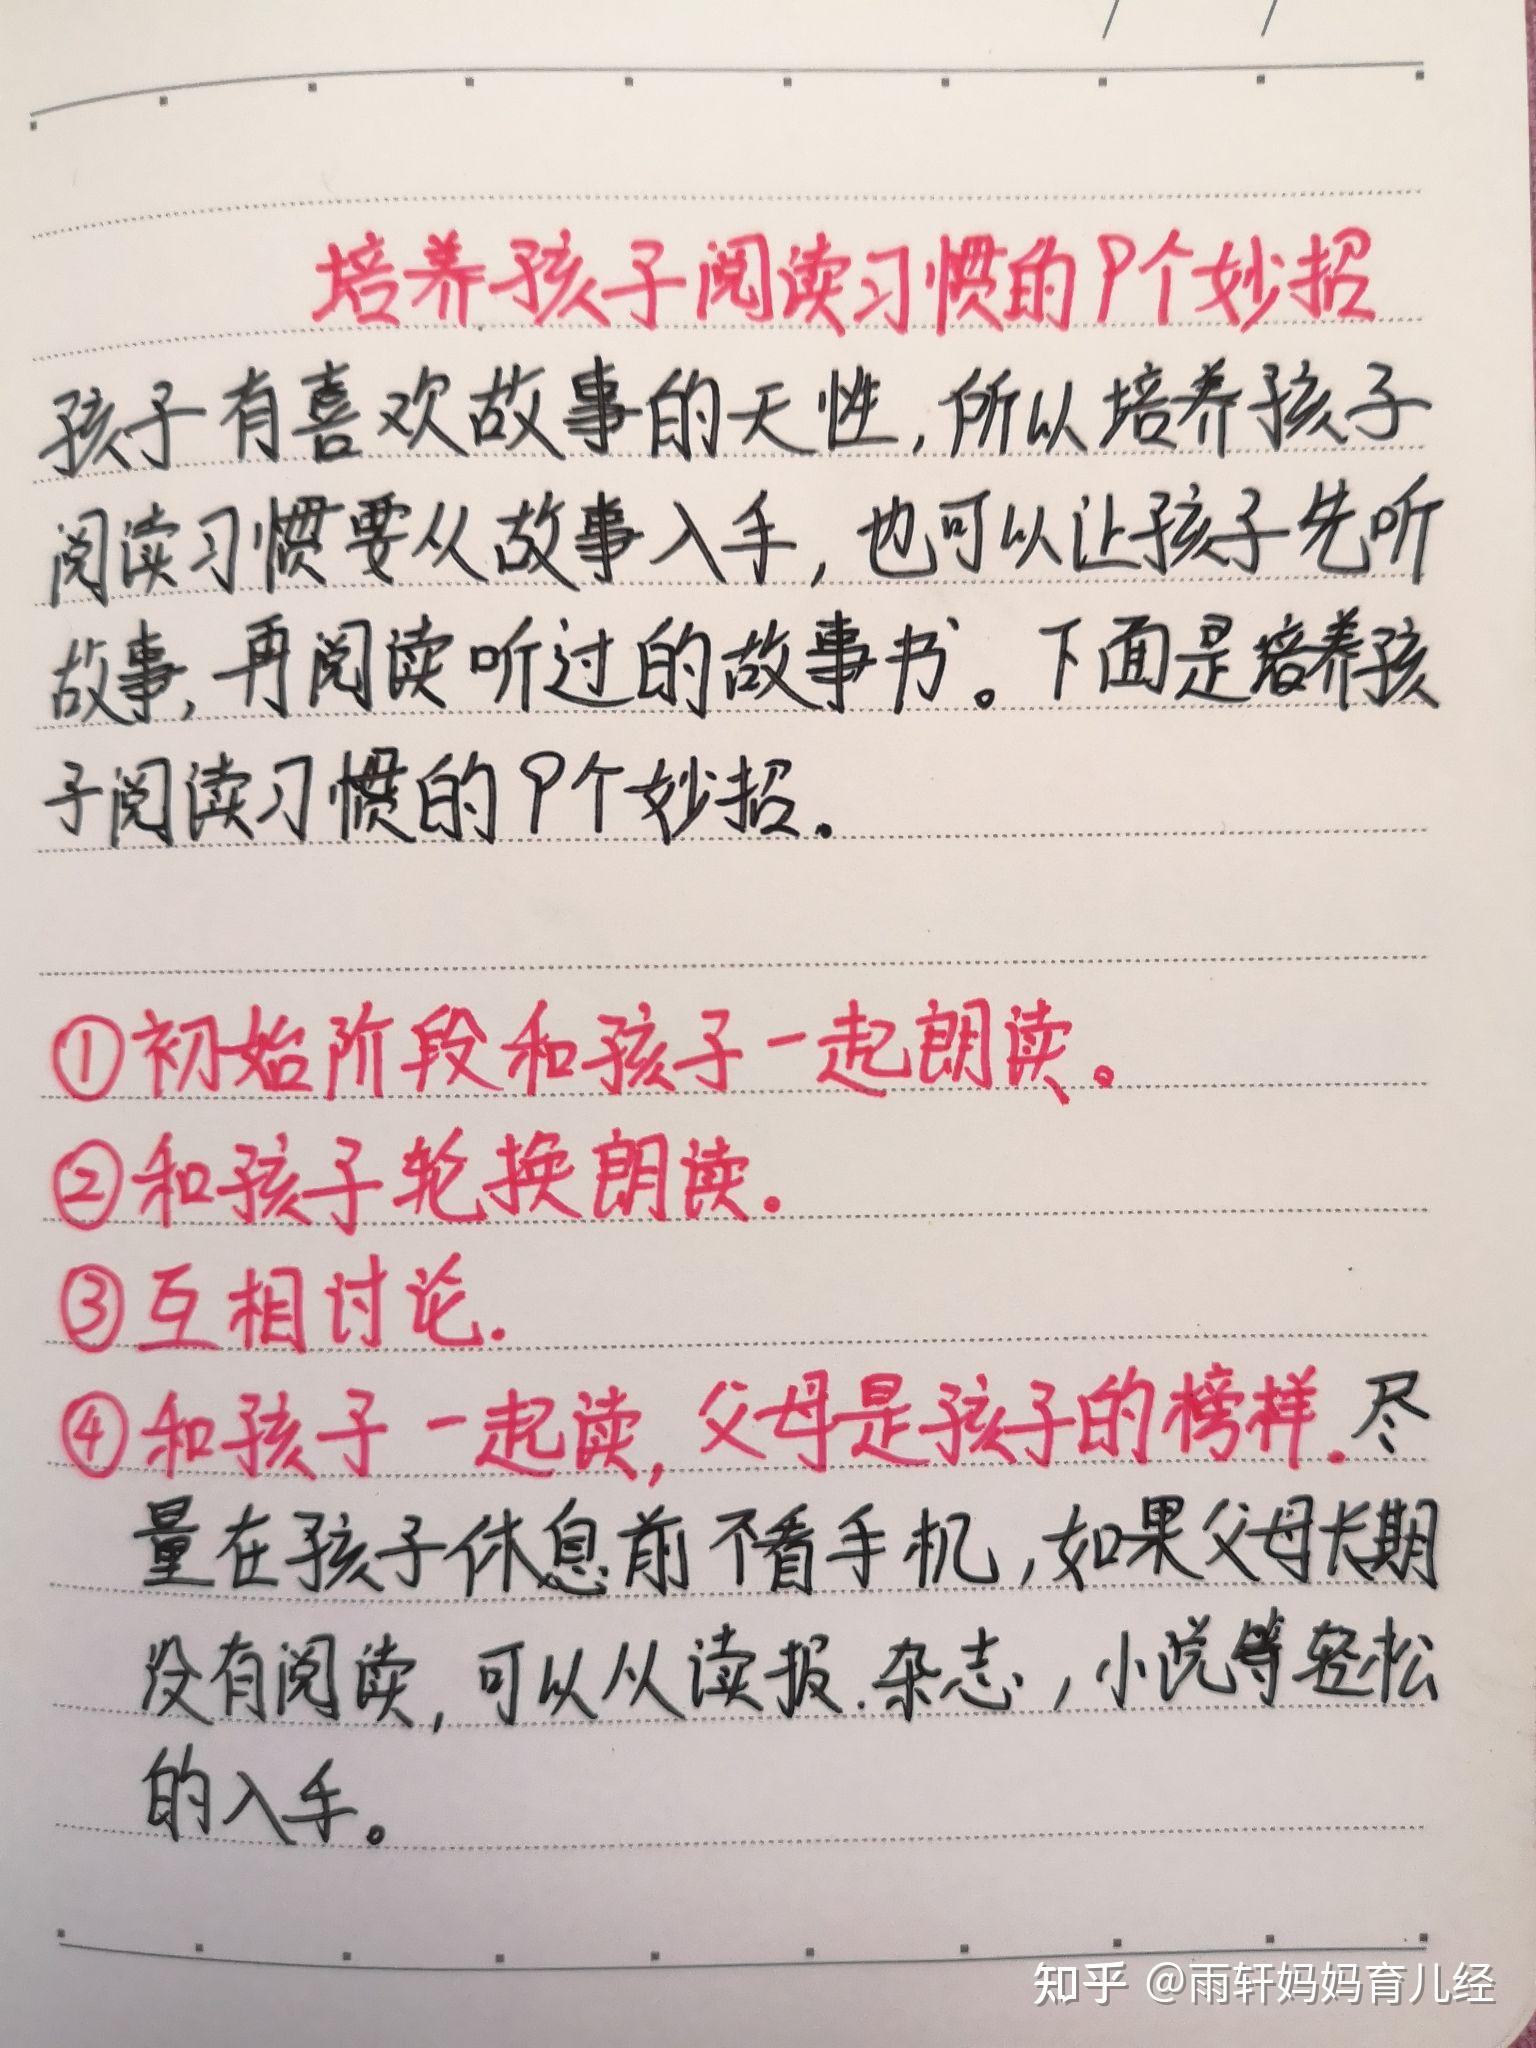 培养孩子阅读习惯的9个妙招
孩子有喜欢故事的天性,所以培养孩子
阅读习惯要从故事入手,也可以让孩子先听
故事,再阅读听过的故事书。下面是培养孩
子阅读习惯的9个妙招.
①初始阶段和孩子一起朗读。
②和孩子轮换朗读.
③互相讨论.
④和孩子一起读,父母是孩子的榜样.尽
量在孩子休息前不看手机,如果父母长期
没有阅读,可以从读报.杂志,小说等轻松
的入手。
知乎 @雨轩妈妈育儿经